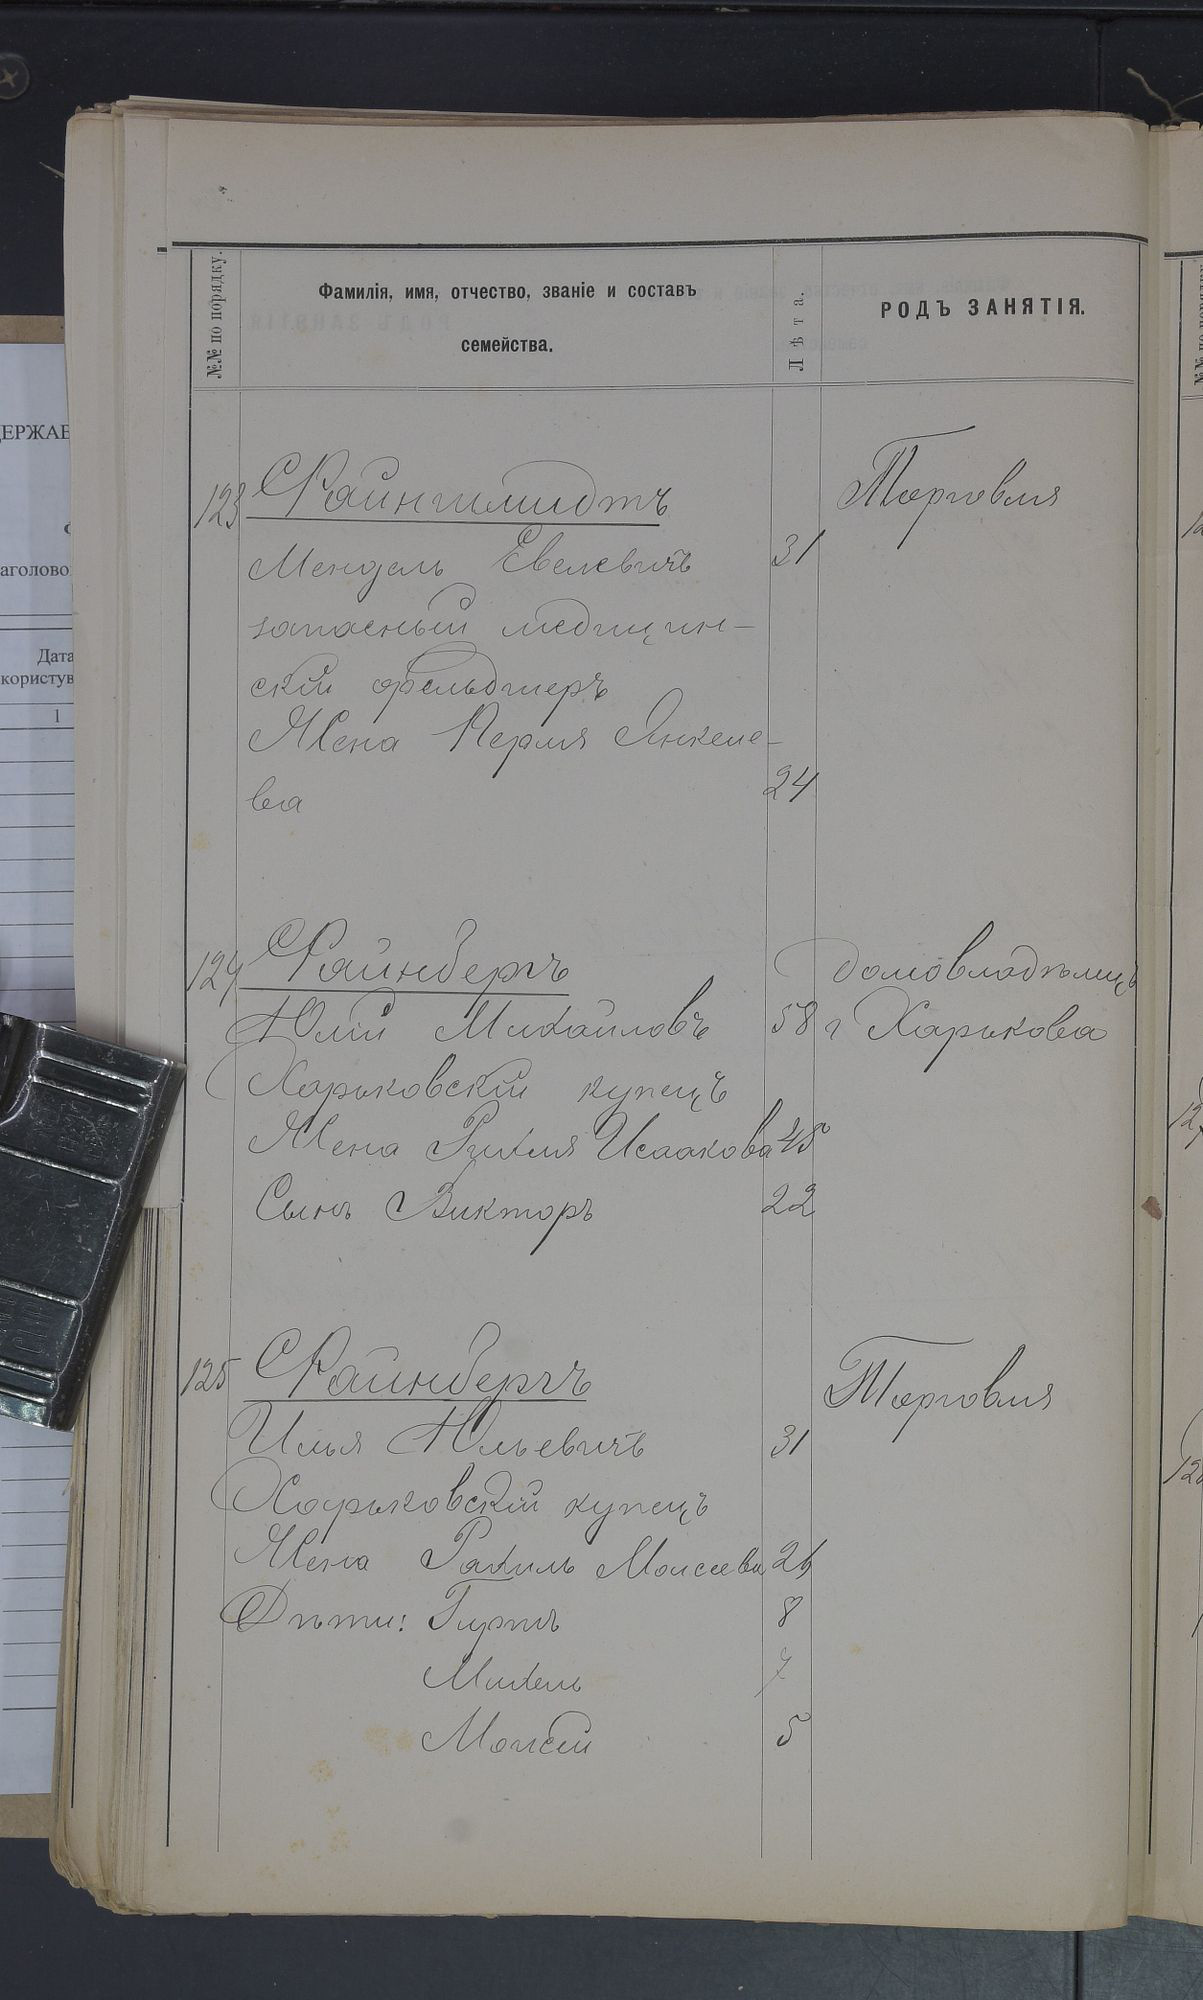 №№ по порядку.
Фамилія, имя, отчество, званіе и составъ
семейства.
Лѣта.
РОДЪ ЗАНЯТІЯ.
123 Файншмидтъ Торговля
Мендель Евелевичъ 31
запасный медицин-
скій фельдшеръ
Жена Перля Янкеле-
ва 24
124 Файнбергъ домовладѣлецъ
Юлій Михайловъ 58 г Харькова
Харьковскій купецъ
Жена Рихля Исаакова 45
Сынъ Викторъ 22
125 Файнбергъ Торговля
Илья Юльевичъ 31
Харьковскій купецъ
Жена Рахиль Моисеева 26
Дѣти: 8
Михель 7
Моисей 5
Дата
користув
1